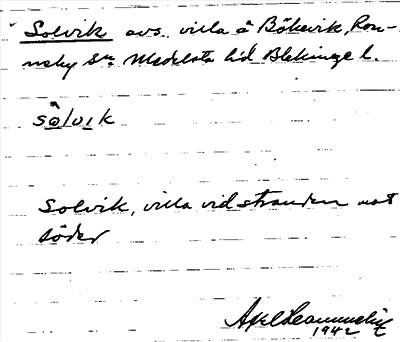 Solvik avs. villa å Bökevik, Ron-
neby Sn Medelsta hd Blekinge l.
sôlvik
Solvik, villa vid stranden mot
söder
Axel
1942